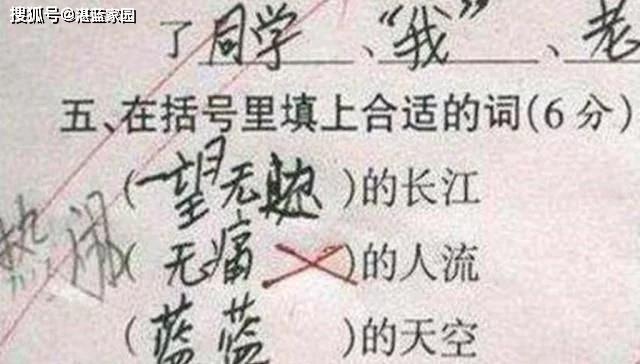 搜狐号@湛蓝家园
了同学、“我”、老
五、在括号里填上合适的词(6分)
(一望无)的长江
热闹
(无痛)的人流
(蓝蓝)的天空